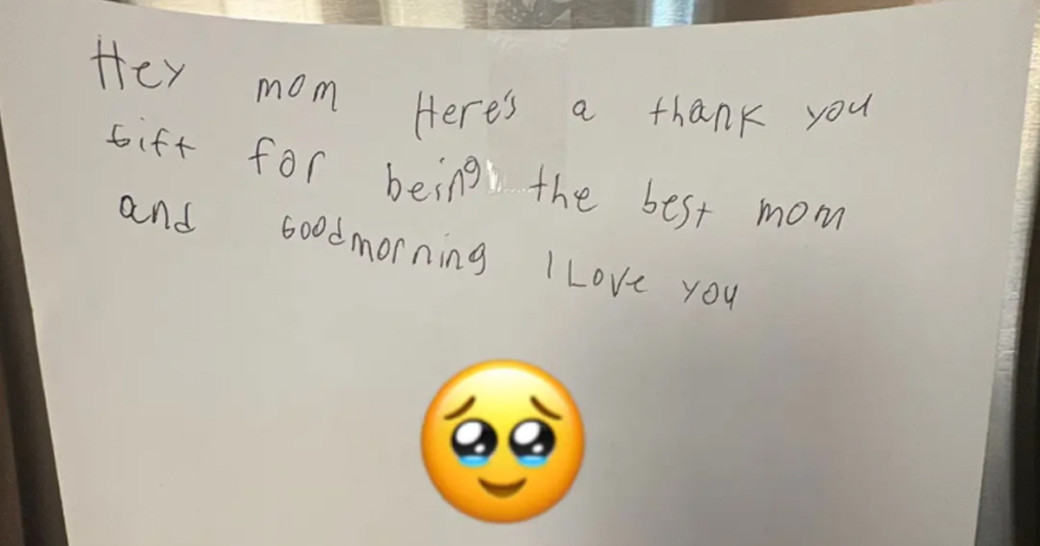 Hey mom Here's a thank you
Gift for being the best mom
and Goodmorning I Love you